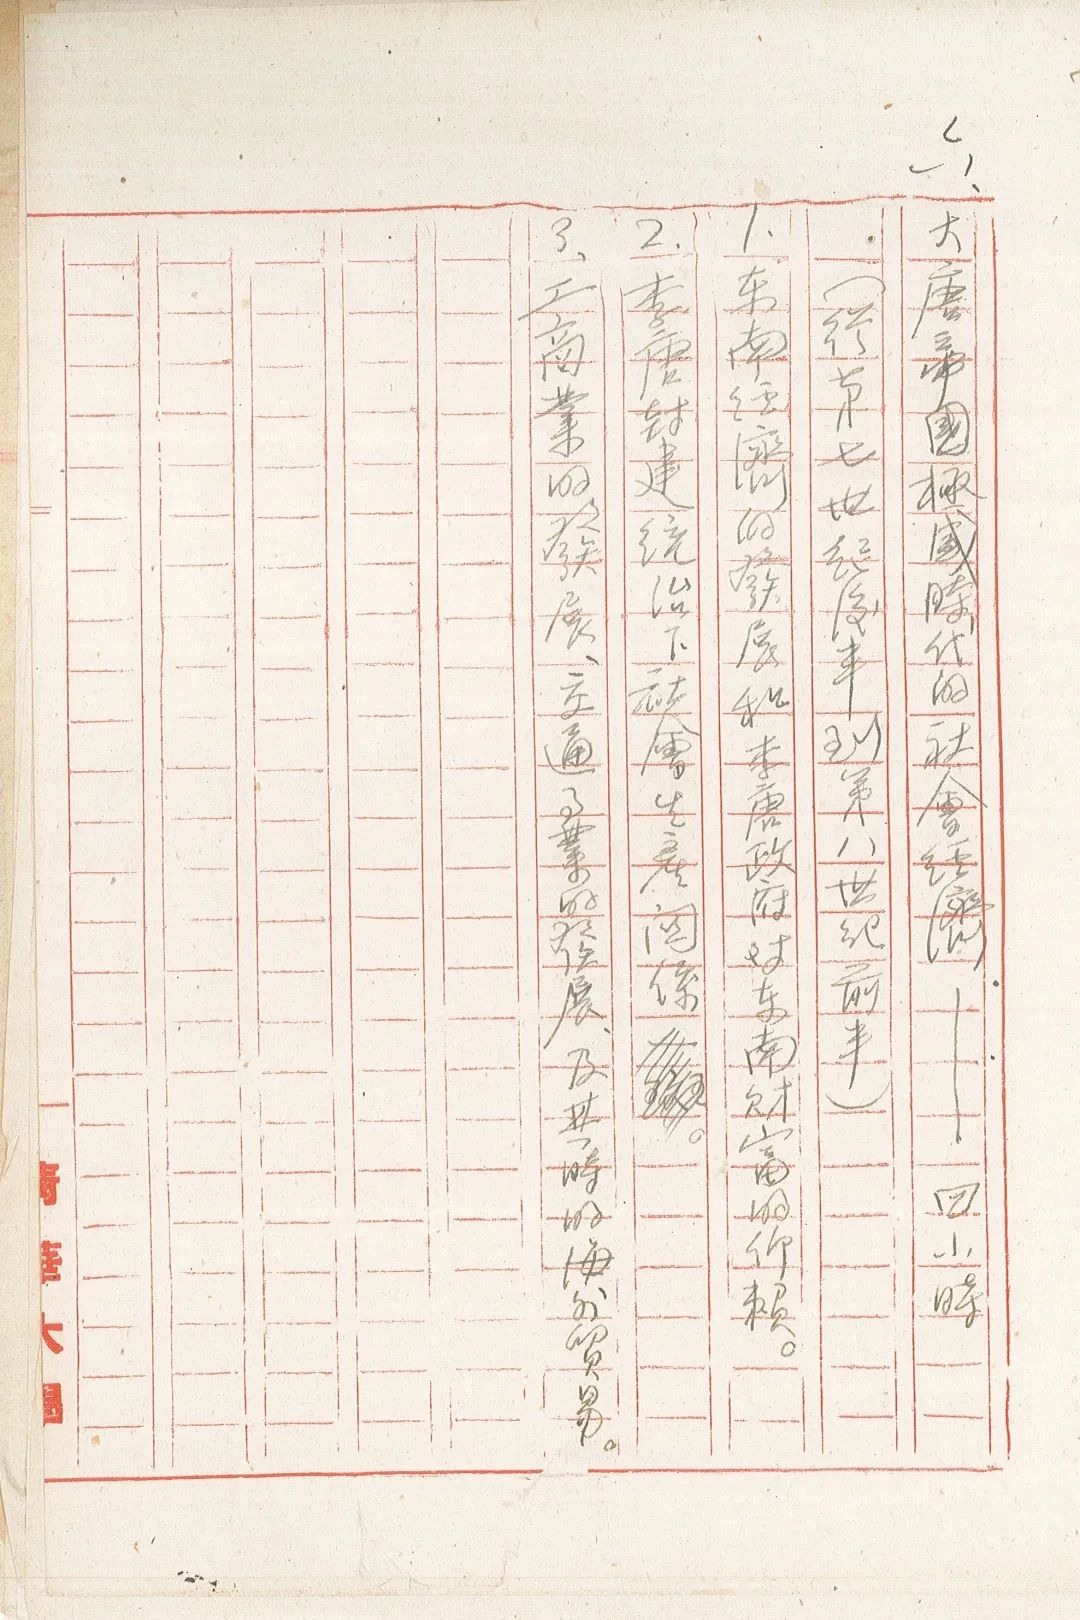 六、
大唐帝國極盛時代的社會經濟——四小時
（從第七世紀後半到第八世紀前半）
1. 东南經濟的發展和李唐政府对东南財富的仰賴。
2. 李唐封建統治下社會生產関係。
3、工商業的發展、交通事業的發展、及其時的海外貿易。
清華大學